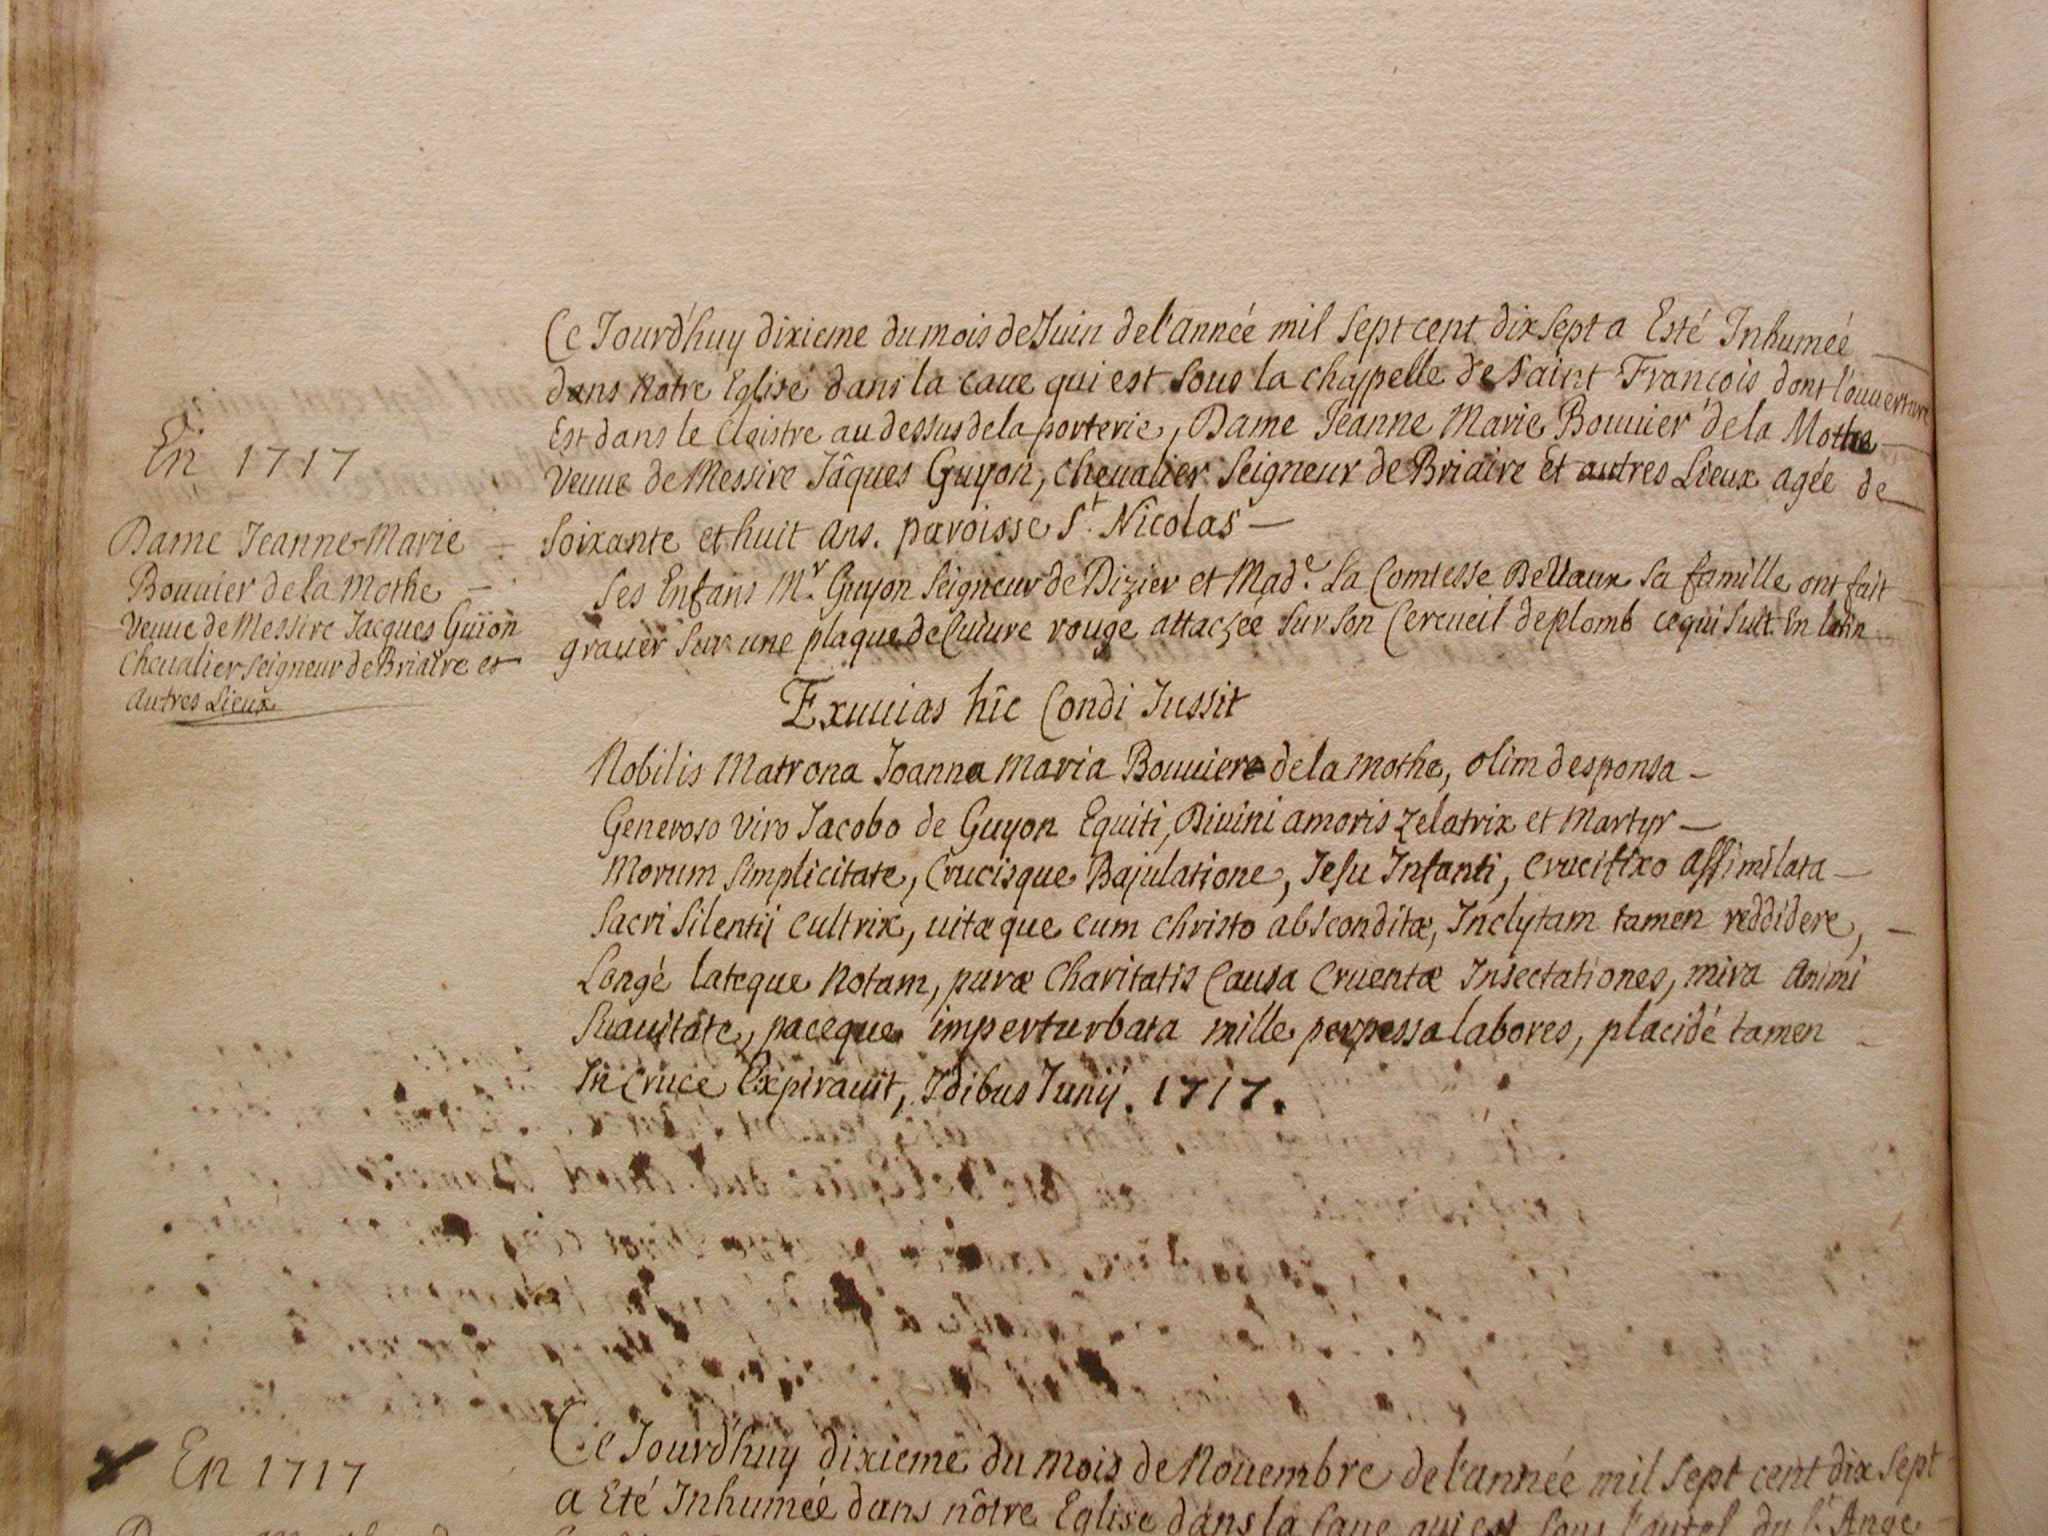 En 1717
Dame Jeanne-Marie
Bouuier de la Mothe
Veuue de Messire Jacques Guïon
Cheualier Seigneur de Briaire et
autres Lieux
Ce Jourd'huy dixieme du mois de Juin de l'année mil sept cent dix sept a Esté Inhumée
dans notre Eglise dans la caue qui est sous la chappelle de saint François dont l'ouuerture
Est dans le Cloistre au dessus de la porterie, Dame Jeanne Marie Bouuier de la Mothe
Veuue de Messire Jâques Guyon, Cheualier Seigneur de Briaire et autres Lieux agée de
soixante et huit ans. paroisse St. Nicolas
Ses Enfans Mr. Guyon Seigneur de Dizier et Made. La Comtesse De Vaux sa famille ont fait
grauer sur une plaque de Cuiure rouge attachée sur son Cercueil de plomb ce qui suit. En latin
Exuuias hîc Condi Jussit
Nobilis Matrona Joanna Maria Bouuiere de la Mothe, olim desponsa
Generoso Viro Jacobo de Guyon Equiti, Diuini amoris zelatrix et Martyr
Morum simplicitate, Crucisque Bajulatione, Jesu Infanti, Crucifixo assimilata
Sacri Silentij Cultrix, uitæque cum Christo absconditæ, Inclytam tamen reddidere,
Longè lateque Notam, puræ Charitatis Causa Cruentæ Insectationes, mira animi
Suauitate, paceque imperturbata mille perpessa labores, placidé tamen
In Cruce Expirauit, Idibus Junij. 1717.
En 1717
Ce Jourd'huy dixieme du mois de Nouembre de l'année mil sept cent dix sept
a Eté Inhumée dans nôtre Eglise dans la Caue qui est sous l'autel du St. Ange